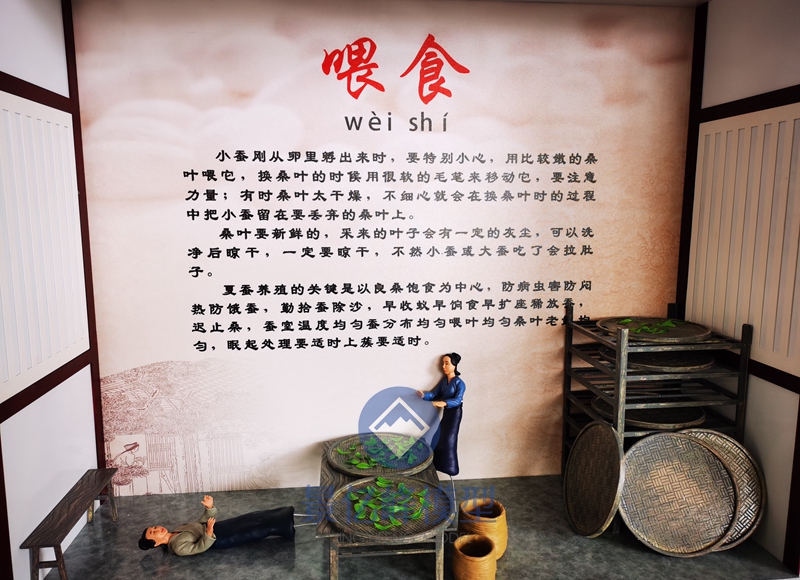 喂食
wèi shí
小蚕刚从卵里孵出来时，要特别小心，用比较嫩的桑
叶喂它，换桑叶的时候用很软的毛笔来移动它，要注意
力量；有时桑叶太干燥，不细心就会在换桑叶时的过程
中把小蚕留在要丢弃的桑叶上。
桑叶要新鲜的，采来的叶子会有一定的灰尘，可以洗
净后晾干，一定要晾干，不然小蚕或大蚕吃了会拉肚
子。
夏蚕养殖的关键是以良桑饱食为中心，防病虫害防闷
热防饿蚕，勤拾蚕除沙，早收蚁早饷食早扩座稀放蚕，
迟止桑，蚕室温度均匀蚕分布均匀喂叶均匀桑叶老嫩均
匀，眠起处理要适时上蔟要适时。